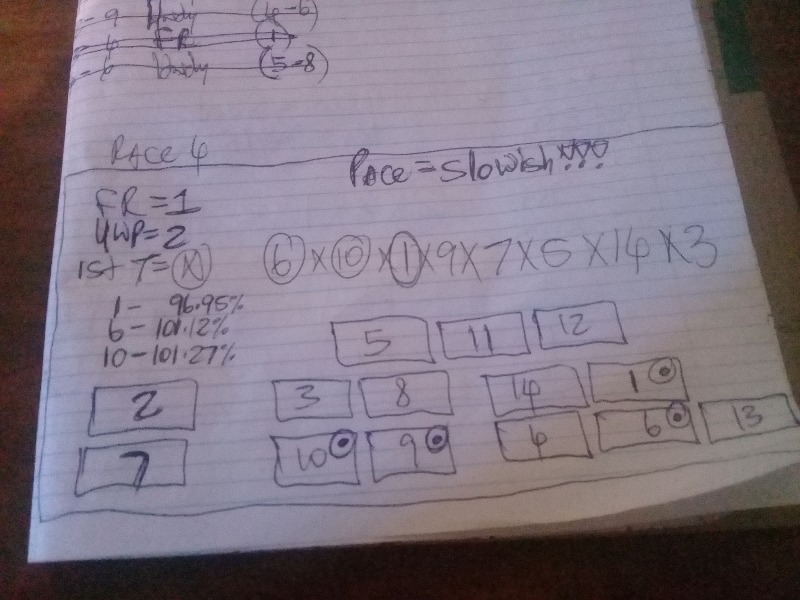 -9 Handy (4-6)
-4 FR (1)
-6 Handy (5-8)
RACE 4
PACE = Slowish!!!
FR = 1
UWP = 2
1st T = (X) 6 X 10 X 1 X 9 X 7 X 5 X 14 X 3
1 - 96.95%
6 - 101.12%
10 - 101.27%
5 11 12
2 3 8 14 1
7 10 9 4 6 13